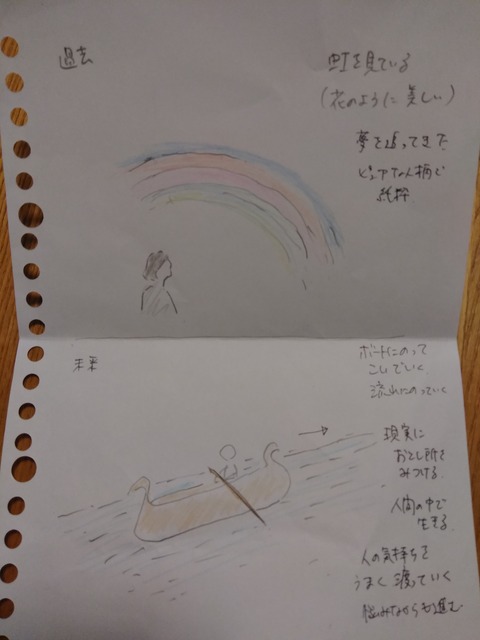 過去
虹を見ている
(花のように美しい)
夢を追ってきた
ピュアな人柄で
純粋
未来
ボートにのって
こいでいく
流れにのっていく
現実に
おとし所を
みつける
人間の中で
生きる
人の気持ちを
うまく渡っていく
悩みながらも進む